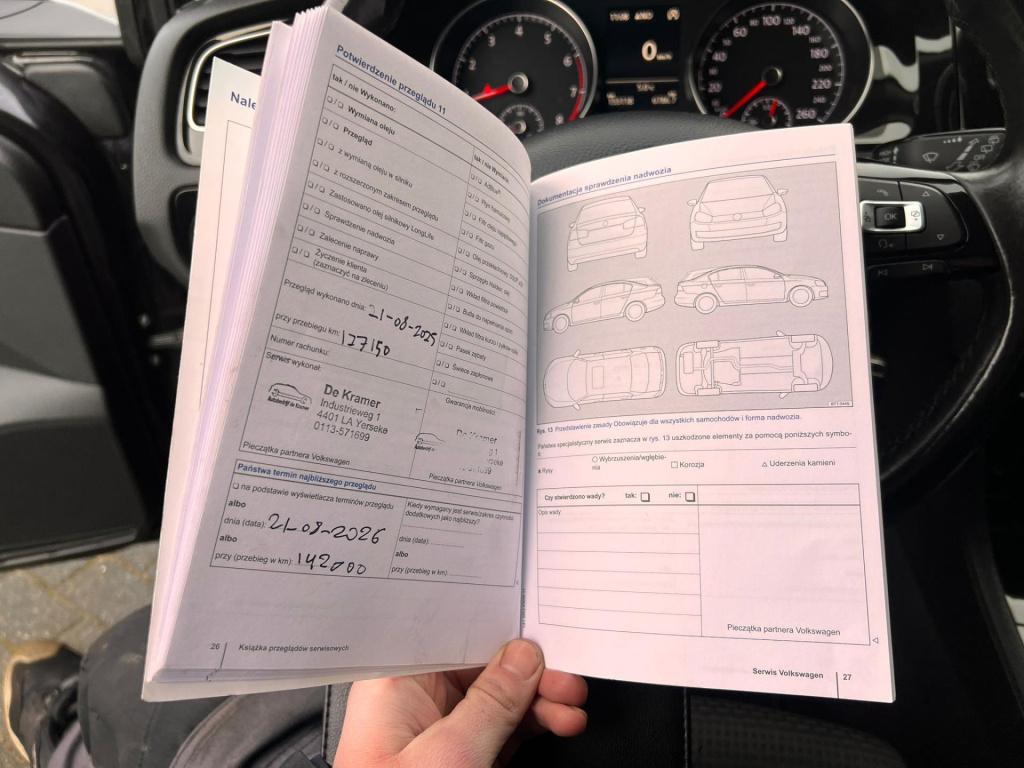 3
4
5
6
7
8
0
20
40
60
80
100
120
140
160
180
200
220
240
260
OK
Nale
Potwierdzenie przeglądu 11
tak / nie Wykonano:
Wymiana oleju
Przegląd
z wymianą oleju w silniku
z rozszerzonym zakresem przeglądu
Zastosowano olej silnikowy LongLife
Sprawdzenie nadwozia
Zalecenie naprawy
Życzenie klienta
(zaznaczyć na zleceniu)
tak / nie Wymiana:
AdBlue®
Płyn hamulcowy
Pasek zębaty
Świece zapłonowe
Przegląd wykonano dnia: 21-08-2025
przy przebiegu km: 127150
Numer rachunku:
Serwis wykonał:
Autobedrijf de Kramer
De Kramer
Industrieweg 1
4401 LA Yerseke
0113-571699
Pieczątka partnera Volkswagen
Gwarancja mobilności
Pieczątka partnera Volkswagen
Państwa termin najbliższego przeglądu
na podstawie wyświetlacza terminów przeglądu
albo
dnia (data): 21-08-2026
albo
przy (przebieg w km): 142000
Kiedy wymagany jest serwis/zakres czynności
dodatkowych jako najbliższy?
dnia (data):
albo
przy (przebieg w km):
26 Książka przeglądów serwisowych
Dokumentacja sprawdzenia nadwozia
Rys. 13 Przedstawienie zasady Obowiązuje dla wszystkich samochodów i forma nadwozia.
Państwa specjalistyczny serwis zaznacza w rys. 13 uszkodzone elementy za pomocą poniższych symbo-
li:
Rysy
Wybrzuszenia/wgłębie-
nia
Korozja
Uderzenia kamieni
Czy stwierdzono wady? tak: nie:
Opis wady
Pieczątka partnera Volkswagen
Serwis Volkswagen 27